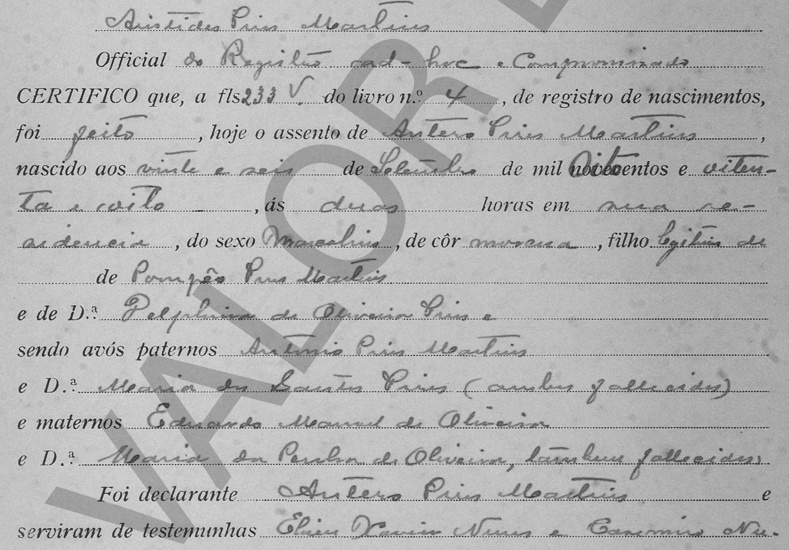 Aristides Pires Martins
Official do Registro ad-hoc e Compromissado
CERTIFICO que, a fls 233 V. do livro n.º 4, de registro de nascimentos,
foi feito, hoje o assento de Antero Pires Martins,
nascido aos vinte e seis de Setembro de mil Oitocentos e oiten-
ta e oito, ás duas horas em sua re-
sidencia, do sexo Masculino, de côr morena, filho legitimo de
de Pompêo Pires Martins
e de D.ª Delphina de Oliveira Pires e
sendo avós paternos Antonio Pires Martins
e D.ª Maria dos Santos Pires (ambos fallecidos)
e maternos Eduardo Manoel de Oliveira
e D.ª Maria da Penha de Oliveira, tambem fallecidos
Foi declarante Antero Pires Martins e
serviram de testemunhas Xavier Nunes e Casemiro Nu-
VALOR